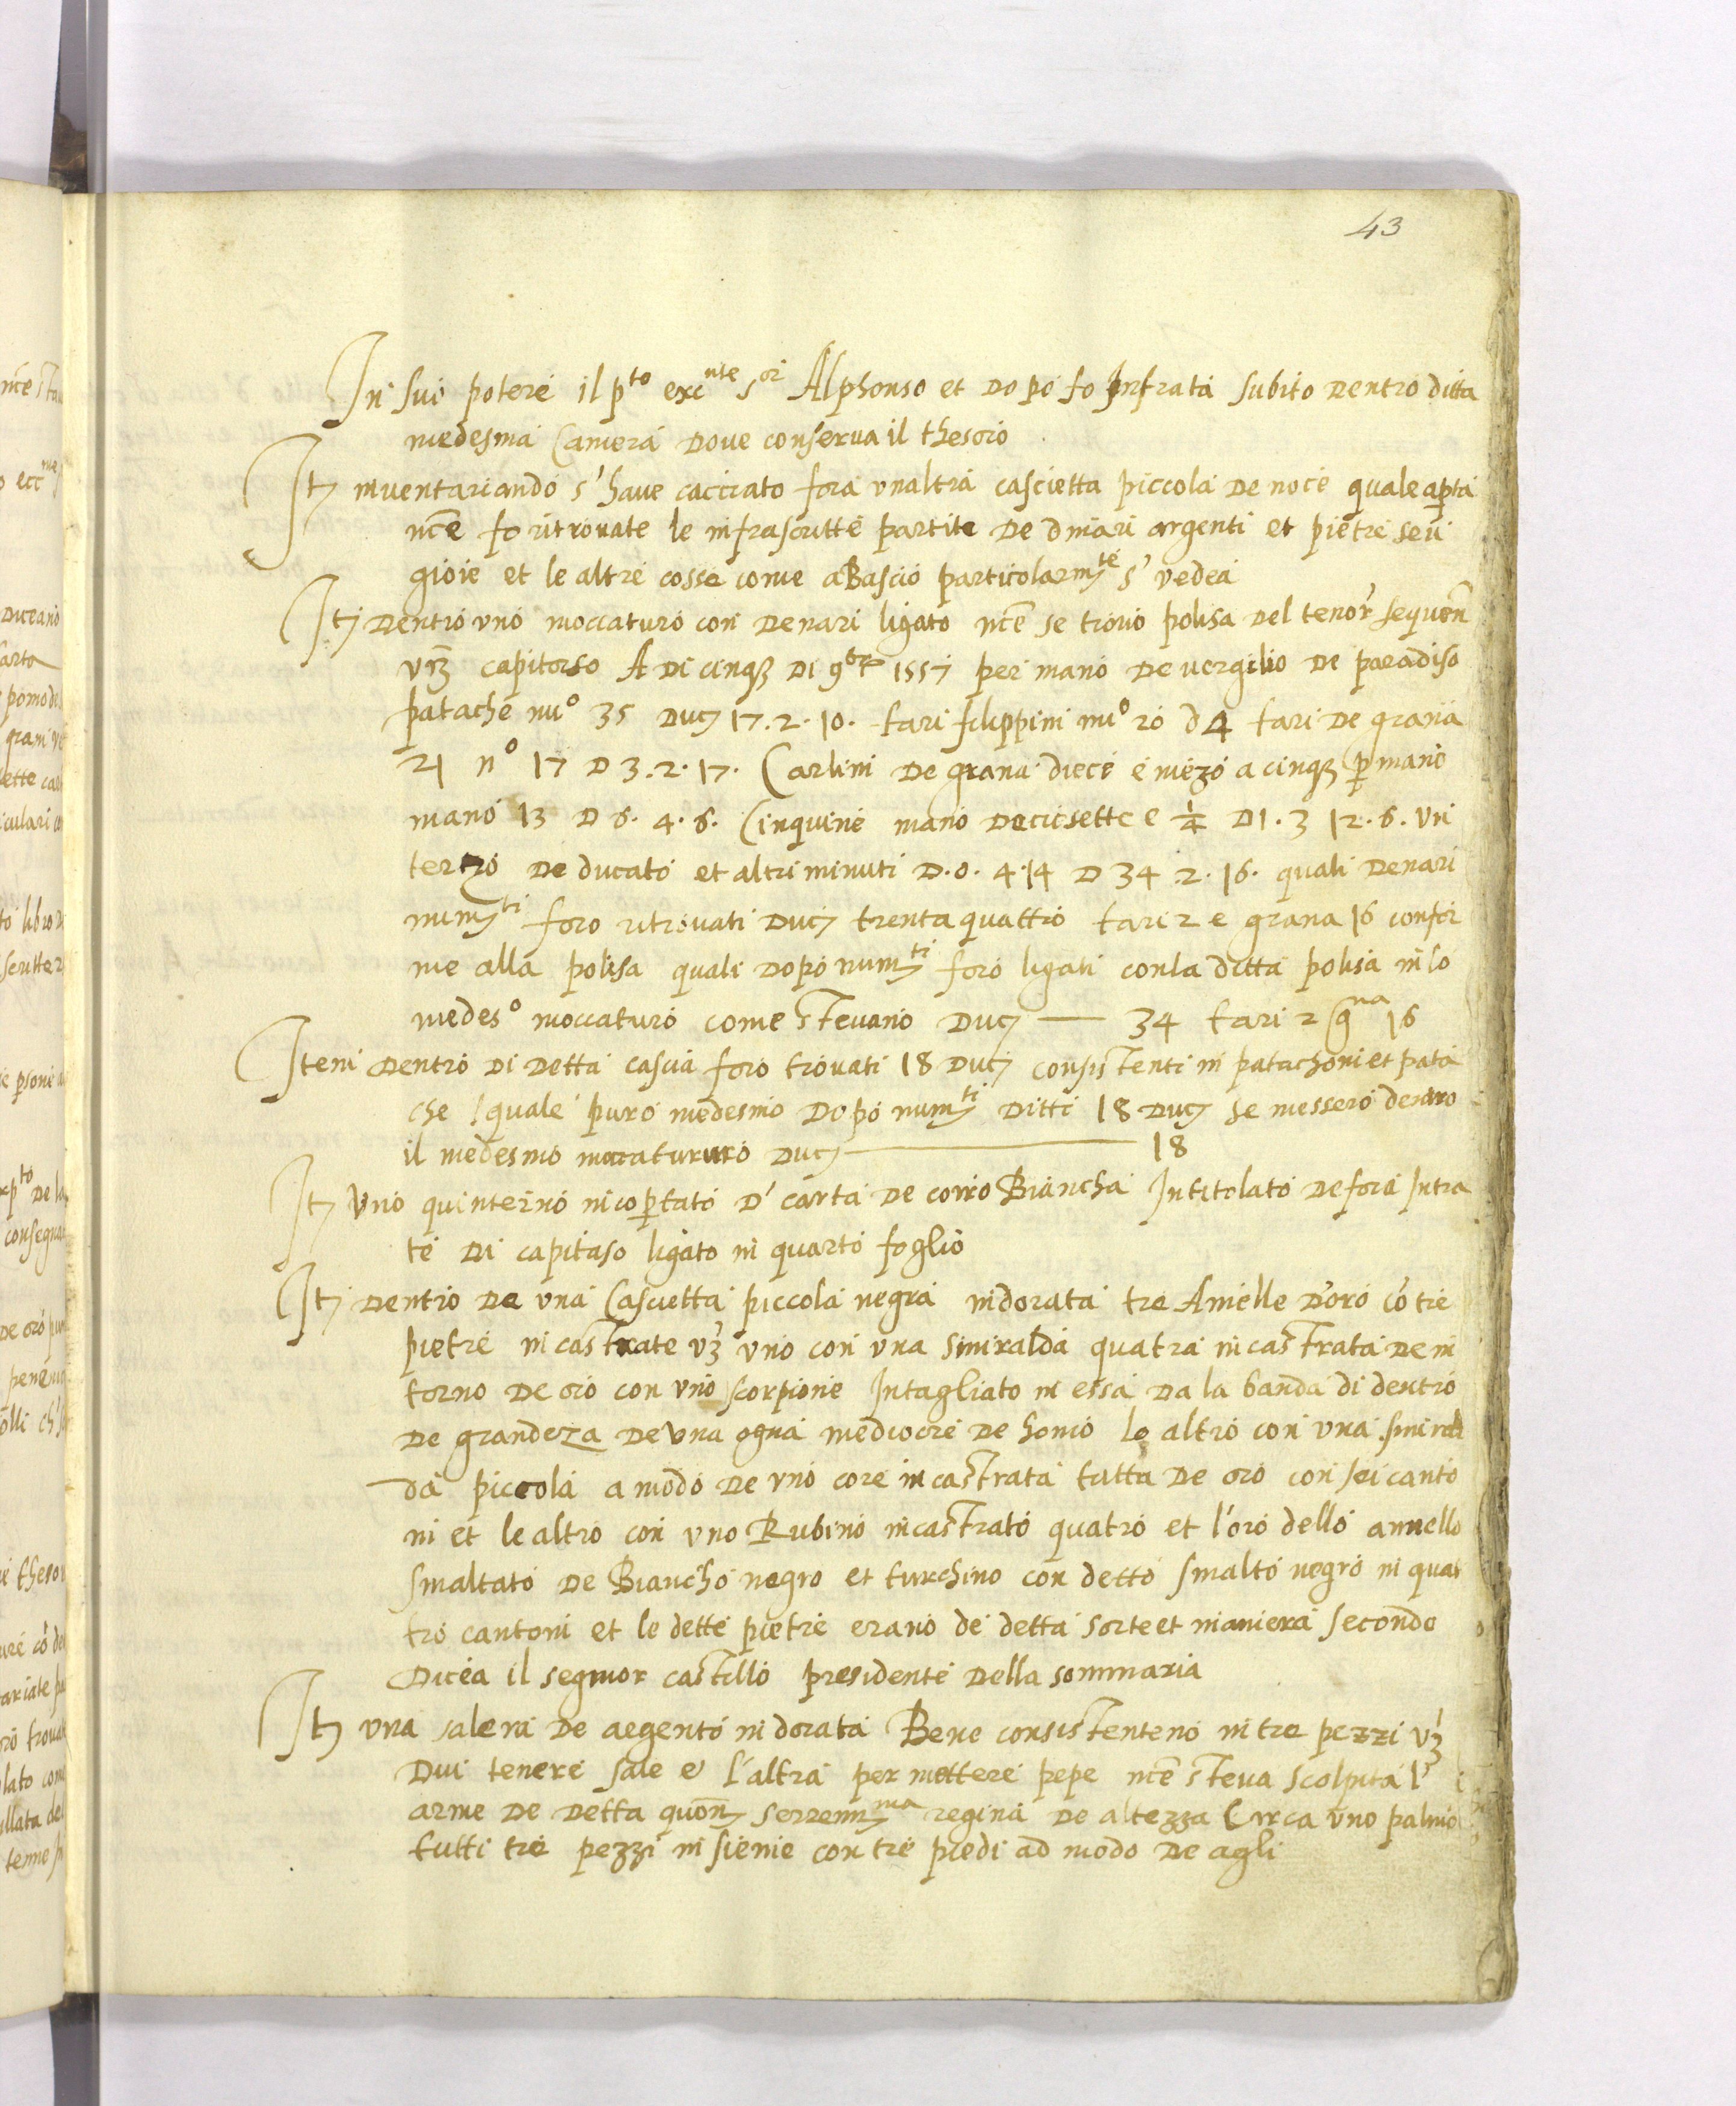 43
In sui potere il pto excnte sor Alphonso et dopo fo subito dentro ditta
medesma Camera dove conserva il thesoro
It inventariando s'have cacciato fora unaltra cascietta piccola de noce quale apta
nce fo ritrovate le infrascritte partite de dinari argenti et pietre seu
gioie et le altre cosse come abascio particolarmte s' vedea
It dentro uno moccaturo con denari ligato nce se trovo polisa del tenor sequen
vz capitorso A di cinq di 9bre 1557 per mano de vergilio de paradiso
patache nuo 35 duc 17. 2. 10. tari filippini nuo 20 d 4 tari de grana
21 no 17 D 3. 2. 17. Carlini de grana diece e mezo a cinq p mano
mano 13 D 6. 4. 6. Cinquine mano decisette e 1/4 D 1. 3 12. 6. Un
terzo de ducato et altri minuti D. 0. 4. 14 D 34 . 2. 16. quali denari
numti foro ritrovati duc trentaquattro tari 2 e grana 16 confor
me alla polisa quali dopo numti foro ligati con la ditta polisa in lo
medeso moccaturo come stevano Duc — 34 tari 2 gna 16
Item dentro di detta cascia foro trovati 18 duc consistenti in patachoni et pata
che quale puro medesmo dopo numti ditti 18 duc se messero dentro
il medesmo duc — 18
It Uno quinterno incoptato d' carta de corio biancha Intitolato de fora Intra
te di capitaso ligato in quarto foglio
It dentro de una Cascietta piccola negra indorata tre Anielle d'oro co tre
pietre incastrate vz uno con una smiralda quatra incastrata de in
torno de oro con uno scorpione Intagliato in essa da la banda di dentro
de grandeza de una ogna mediocre de homo lo altro con una smiral
da piccola a modo de uno core incastrata tutta de oro con sei canto
ni et le altro con uno Rubino incastrato quatro et l'oro dello annello
smaltato de biancho negro et turchino con detto smalto negro in quat
tro cantoni et le dette pietre erano de detta sorte et maniera secondo
dicea il segnior castillo presidente della sommaria
It una salera de argento indorata Bene consistenteno in tre pezzi vz
dui tenere sale e l'altra per mettere pepe nce steva scolpita l'
arme de detta quon serrenma regina de altezza Circa uno palmo
tutti tre pezzi insieme con tre piedi ad modo de agli